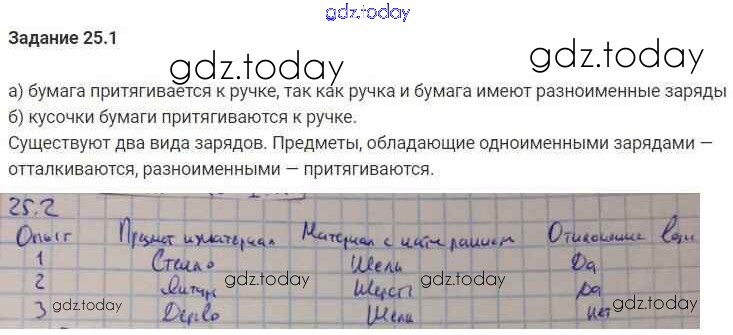 gdz.today
Задание 25.1
gdz.today gdz.today
а) бумага притягивается к ручке, так как ручка и бумага имеют разноименные заряды
б) кусочки бумаги притягиваются к ручке.
Существуют два вида зарядов. Предметы, обладающие одноименными зарядами —
отталкиваются, разноименными — притягиваются.
25.2
Опыт Предмет и материал Материал с
1 Стекло Шелк Да
gdz.today gdz.today
2 Янтарь Шерсть Да
gdz.today gdz.today
3 Дерево Шелк нет